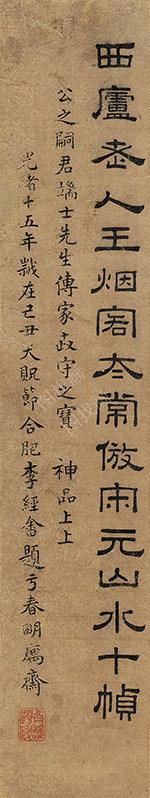 西廬老人王烟客太常倣宋元山水十幀
公之嗣君端士先生傳家政守之寶 神品上上
光緒十五年歲在己丑天貺節合肥李經畬題于春明寓齋